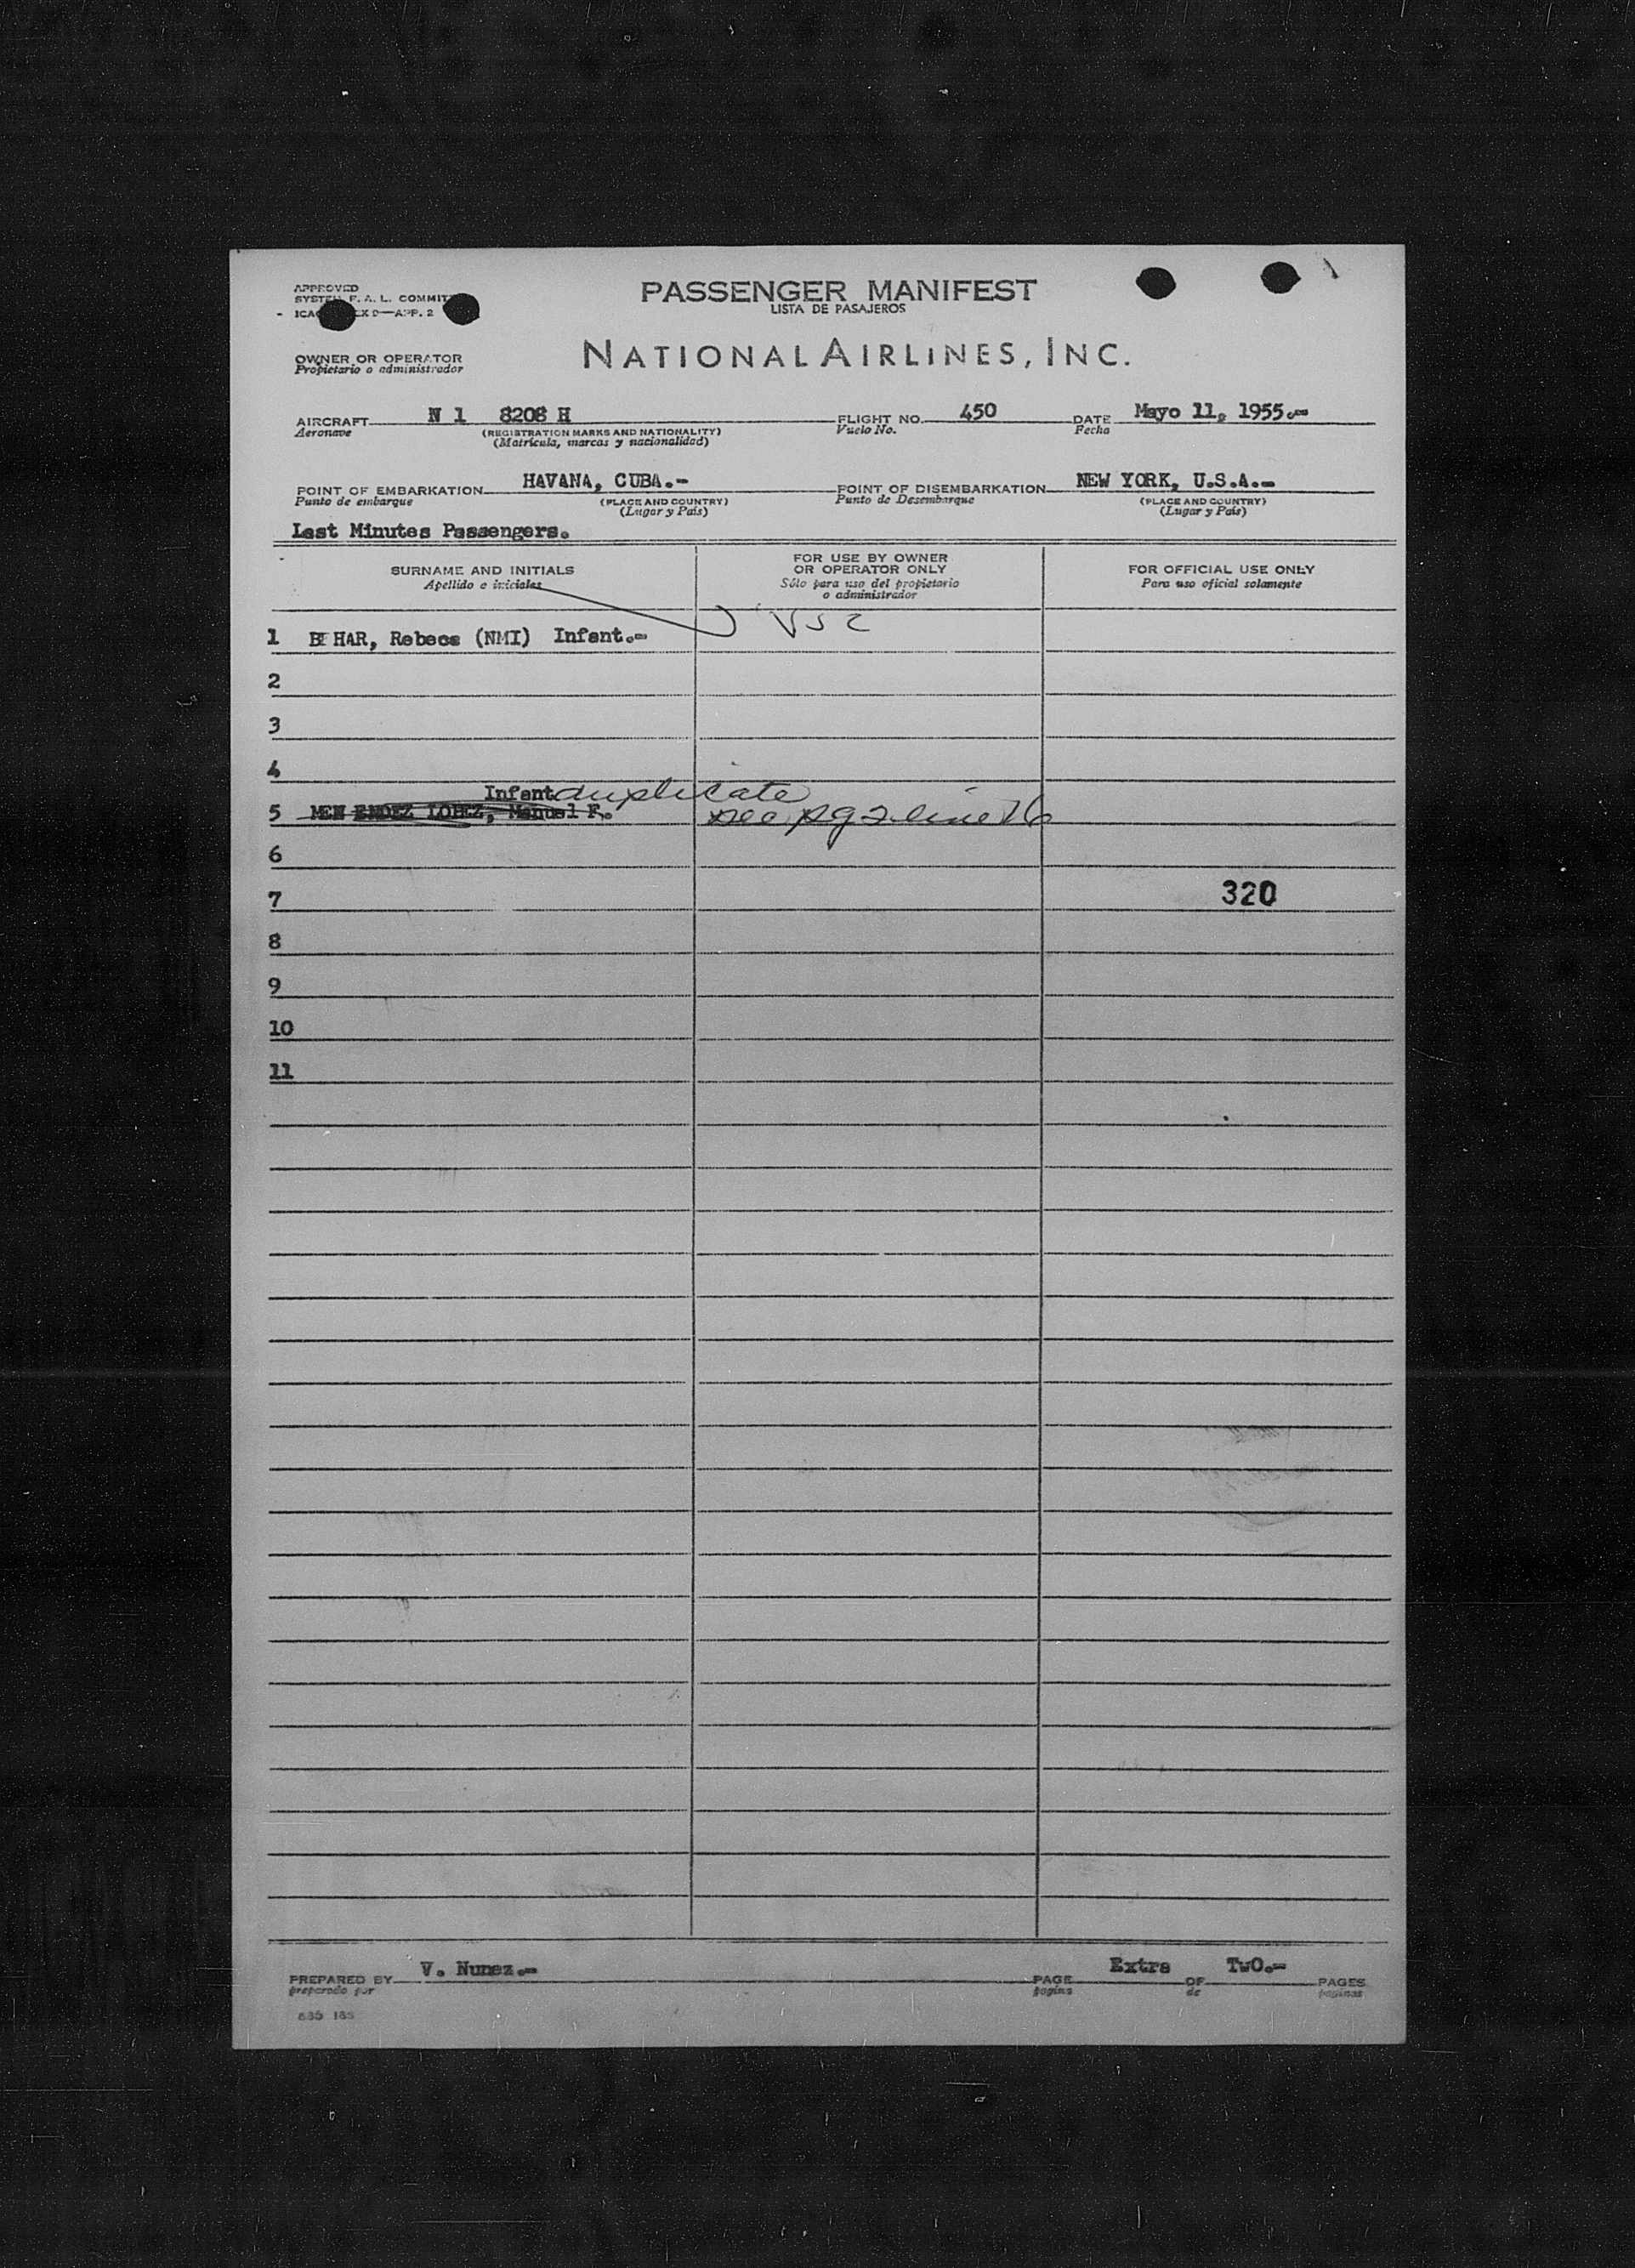 APPROVED
SYSTEM F. A. L. COMMIT
ICAO D—APP. 2
PASSENGER MANIFEST
LISTA DE PASAJEROS
OWNER OR OPERATOR
Propietario o administrador
NATIONAL AIRLINES, INC.
AIRCRAFT N 1 8208 H FLIGHT NO. 450 DATE Mayo 11, 1955.-
Aeronave (REGISTRATION MARKS AND NATIONALITY) Vuelo No. Fecha
(Matrícula, marcas y nacionalidad)
POINT OF EMBARKATION HAVANA, CUBA.- POINT OF DISEMBARKATION NEW YORK, U.S.A.-
Punto de embarque (PLACE AND COUNTRY) Punto de Desembarque (PLACE AND COUNTRY)
(Lugar y País) (Lugar y País)
Last Minutes Passengers.
SURNAME AND INITIALS
Apellido e iniciales
FOR USE BY OWNER
OR OPERATOR ONLY
Sólo para uso del propietario
o administrador
FOR OFFICIAL USE ONLY
Para uso oficial solamente
1 BEHAR, Rebeca (NMI) Infant.-
2
3
4
Infant duplicate
5 MEN ENDEZ LOPEZ, Manuel F. see pg 2 line 16
6
7 320
8
9
10
11
PREPARED BY V. Nunez.- PAGE Extra OF TwO.- PAGES
preparado por página de páginas